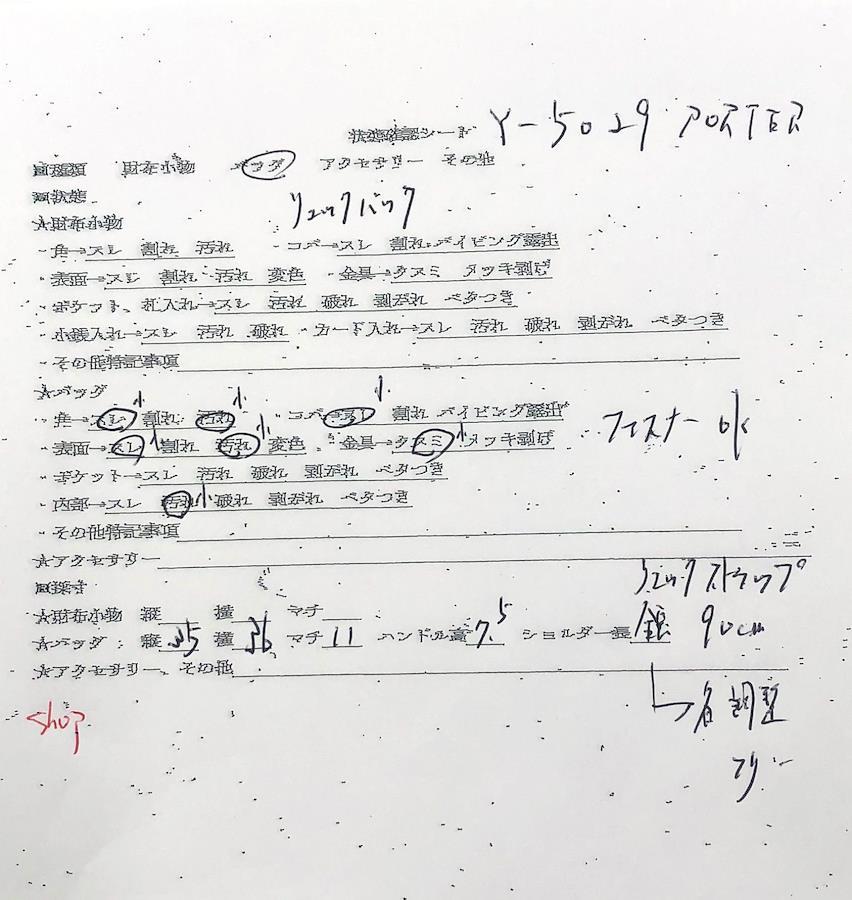 状態確認シート Y-5029 PORTER
■種類 財布小物 バッグ アクセサリー その他
■状態
リュックバック
★財布小物
・角→スレ 割れ 汚れ ・コバ→スレ 割れ パイピング露出
・表面→スレ 割れ 汚れ 変色 ・金具→クスミ メッキ剥げ
・ポケット、札入れ→スレ 汚れ 破れ 剥がれ ベタつき
・小銭入れ→スレ 汚れ 破れ ・カード入れ→スレ 汚れ 破れ 剥がれ ベタつき
・その他特記事項
★バッグ
・角→スレ小 割れ 汚れ小 ・コバ→スレ小 割れ パイピング露出
・表面→スレ小 割れ 汚れ小 変色 ・金具→クスミ小 メッキ剥げ
ファスナー ok
・ポケット→スレ 汚れ 破れ 剥がれ ベタつき
・内部→スレ 汚れ小 破れ 剥がれ ベタつき
・その他特記事項
★アクセサリー
■採寸
リュックストラップ
★財布小物 縦 横 マチ
★バッグ：縦35 横36 マチ11 ハンドル高7.5 ショルダー長 90cm
★アクセサリー、その他
調整
shop